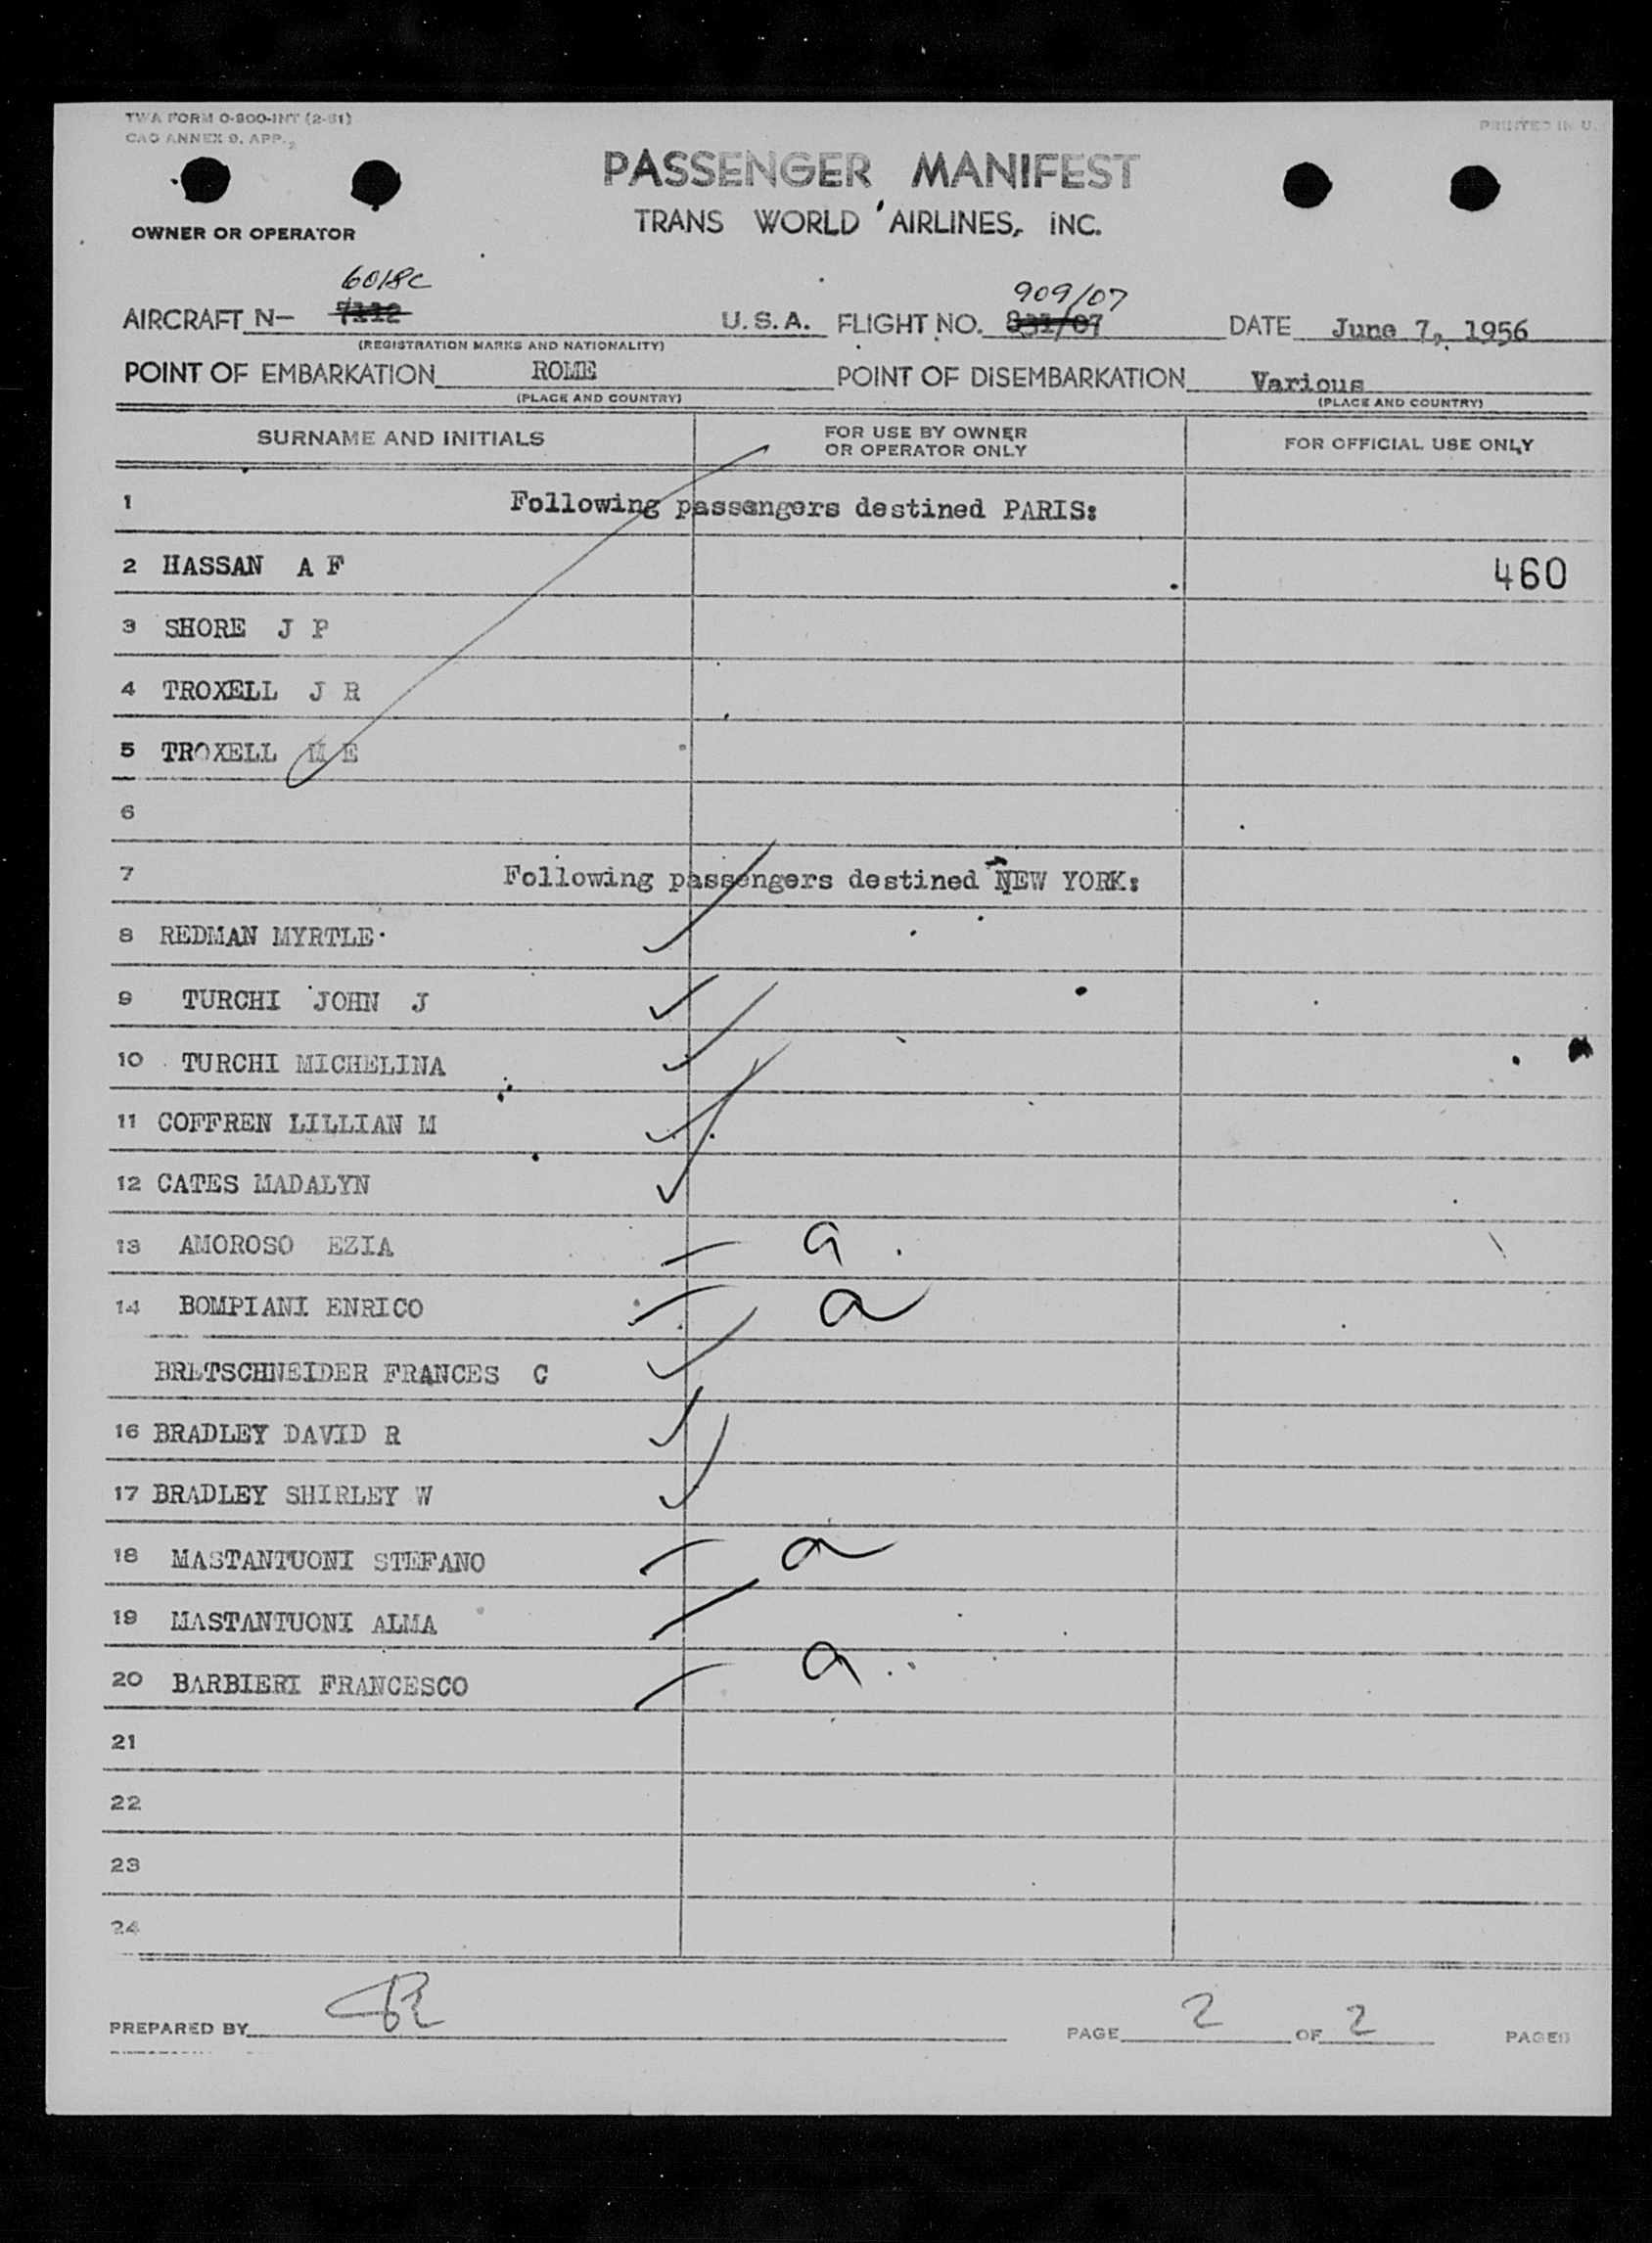 TWA FORM O-900-INT (2-51)
CAO ANNEX 9. APP. 2
PRINTED IN U.
PASSENGER MANIFEST
TRANS WORLD AIRLINES, INC.
OWNER OR OPERATOR
6018C 909/07
AIRCRAFT N- 7112 U.S.A. FLIGHT NO. 831/07 DATE June 7, 1956
(REGISTRATION MARKS AND NATIONALITY)
POINT OF EMBARKATION ROME POINT OF DISEMBARKATION Various
(PLACE AND COUNTRY) (PLACE AND COUNTRY)
SURNAME AND INITIALS FOR USE BY OWNER OR OPERATOR ONLY FOR OFFICIAL USE ONLY
1 Following passengers destined PARIS:
2 HASSAN A F 460
3 SHORE J P
4 TROXELL J R
5 TROXELL M E
6
7 Following passengers destined NEW YORK:
8 REDMAN MYRTLE
9 TURCHI JOHN J
10 TURCHI MICHELINA
11 COFFREN LILLIAN M
12 CATES MADALYN
13 AMOROSO EZIA a
14 BOMPIANI ENRICO a
BRETSCHNEIDER FRANCES C
16 BRADLEY DAVID R
17 BRADLEY SHIRLEY W
18 MASTANTUONI STEFANO a
19 MASTANTUONI ALMA
20 BARBIERI FRANCESCO a
21
22
23
24
PREPARED BY PAGE 2 OF 2 PAGES